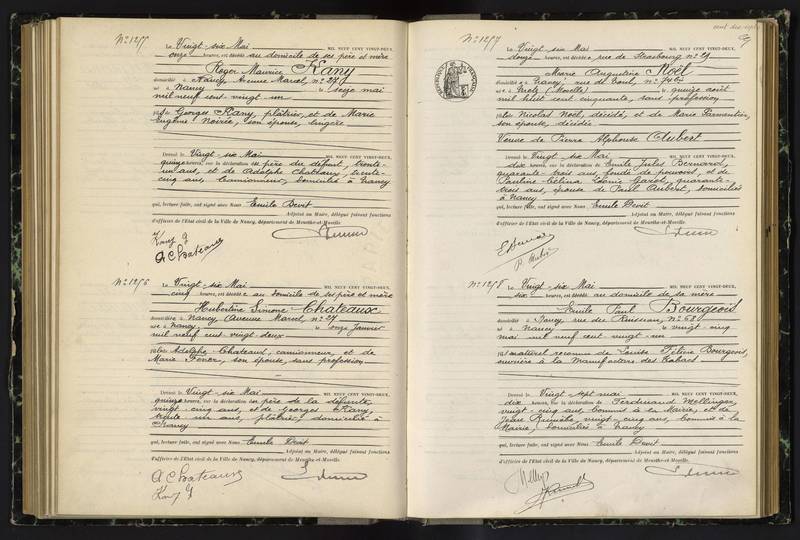 N° 1255
Le Vingt-six Mai MIL NEUF CENT VINGT-DEUX,
onze heures, est décédé au domicile de ses père et mère
Roger Maurice Kany
domicilié à Nancy Avenue Marcel, n° 27
né à Nancy le seize mai
mil neuf cent vingt un
fils Georges Kany, plâtrier, et de Marie
Eugénie Noirée, son épouse, lingère
Dressé le Vingt-six Mai MIL NEUF CENT VINGT-DEUX,
quinze heures, sur la déclaration du père du défunt, trente-
un ans, et de Adolphe Chateaux, vingt-
cinq ans, camionneur, domiciliés à Nancy
qui, lecture faite, ont signé avec Nous Emile Devit
Adjoint au Maire, délégué faisant fonctions
d'officier de l'Etat civil de la Ville de Nancy, département de Meurthe-et-Moselle.
Kany G
A Chateaux
N° 1256
Le Vingt-six Mai MIL NEUF CENT VINGT-DEUX,
cinq heures, est décédée au domicile de ses père et mère
Hubertine Simone Chateaux
domiciliée à Nancy Avenue Marcel n° 27
née à Nancy le onze Janvier
mil neuf cent vingt deux
fille Adolphe Chateaux, camionneur, et de
Marie son épouse, sans profession
Dressé le Vingt-six Mai MIL NEUF CENT VINGT-DEUX,
quinze heures, sur la déclaration du père de la défunte,
vingt-cinq ans, et de Georges Kany,
trente-un ans, plâtrier, domiciliés à
Nancy
qui, lecture faite, ont signé avec Nous Emile Devit
Adjoint au Maire, délégué faisant fonctions
d'officier de l'Etat civil de la Ville de Nancy, département de Meurthe-et-Moselle.
A Chateaux
Kany G
N° 1257
Le Vingt-six Mai MIL NEUF CENT VINGT-DEUX,
douze heures, est décédée rue de Strasbourg n° 29
Marie Augustine Noël
domiciliée à Nancy, rue de Toul, n°
née à (Moselle) le quinze août
mil huit cent cinquante, sans profession
fille Nicolas Noël, décédé, et de Marie Parmentier,
son épouse, décédée
Veuve de Pierre Alphonse Aubert
Dressé le Vingt six Mai MIL NEUF CENT VINGT-DEUX,
dix heures, sur la déclaration de Emile Jules Bernard,
quarante-trois ans, fondé de pouvoirs, et de
Pauline Célina quarante-
trois ans, épouse de Paul Aubert, domiciliés
à Nancy
qui, lecture faite, ont signé avec Nous Emile Devit
Adjoint au Maire, délégué faisant fonctions
d'officier de l'Etat civil de la Ville de Nancy, département de Meurthe-et-Moselle.
N° 1258
Le Vingt-six Mai MIL NEUF CENT VINGT-DEUX,
six heures, est décédé au domicile de sa mère
Emile Paul Bourgeois
domicilié à Nancy, rue du Ruisseau, n° 68
né à Nancy le vingt-cinq
mai mil neuf cent vingt-un
fils naturel reconnu de Louise Bourgeois,
ouvrière à la Manufacture des tabacs
Dressé le Vingt-sept mai MIL NEUF CENT VINGT-DEUX,
dix heures, sur la déclaration de Ferdinand Mellinger,
vingt-cinq ans, commis à la Mairie, et de
vingt-cinq ans, commis à la
Mairie, domiciliés à Nancy
qui, lecture faite, ont signé avec Nous Emile Devit
Adjoint au Maire, délégué faisant fonctions
d'officier de l'Etat civil de la Ville de Nancy, département de Meurthe-et-Moselle.